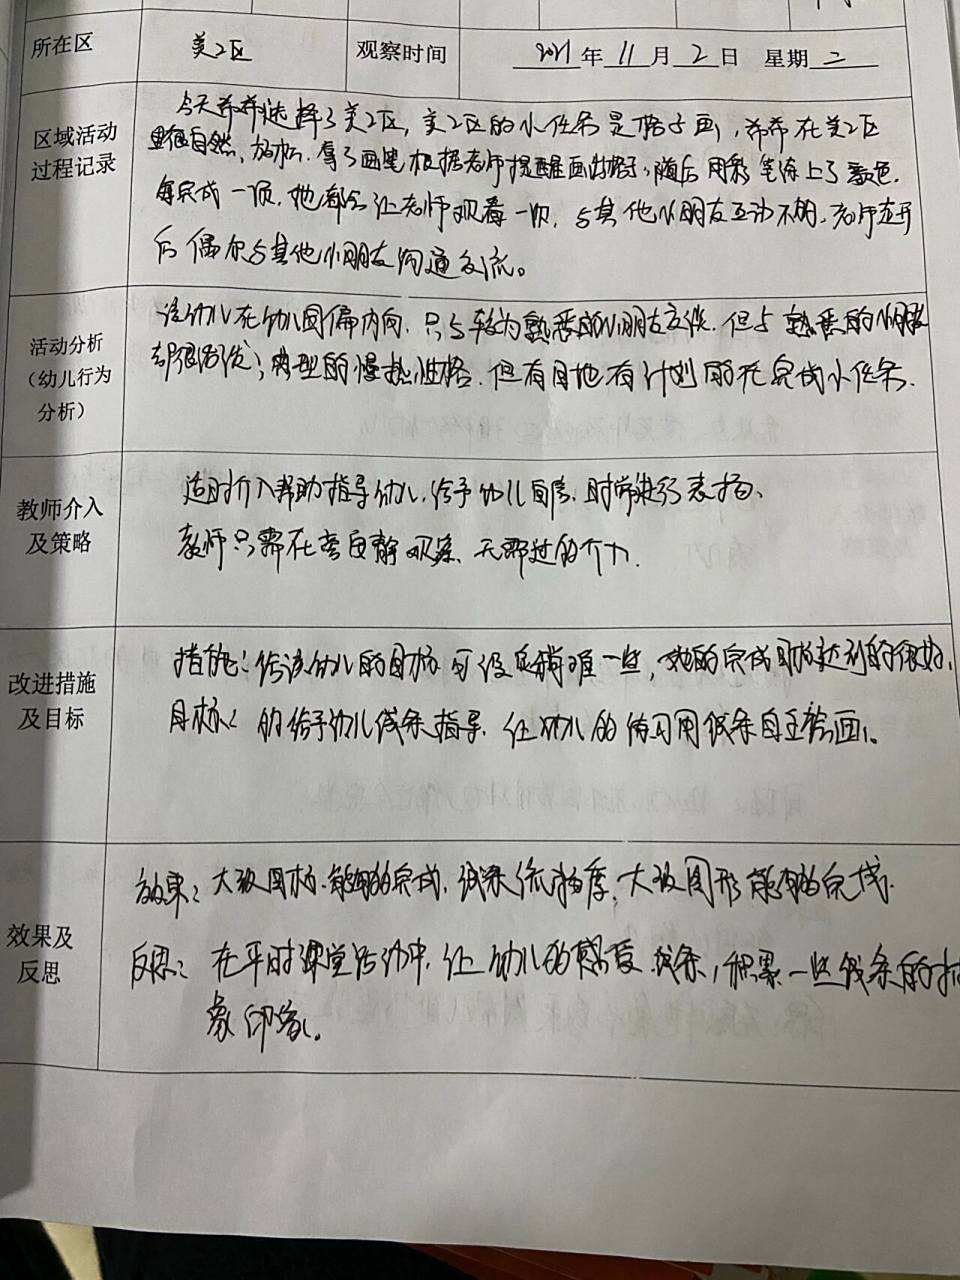 所在区 美工区 观察时间 2021年11月2日 星期二
区域活动过程记录
今天希希选择了美工区,美工区的小任务是格子画,希希在美工区
很自然、放松、拿了画笔根据老师提醒画出格子,随后用彩笔涂上了颜色.
每完成一项,她都会让老师观看一次,与其他小朋友互动不多,老师离开
后偶尔与其他小朋友沟通交流。
活动分析(幼儿行为分析)
该幼儿在幼儿园偏内向,只与较为熟悉的小朋友交谈.但与熟悉的小朋友
却很活泼;典型的慢热性格.但有目地有计划的在完成小任务.
教师介入及策略
适时介入帮助指导幼儿,给予幼儿自信,时常进行表扬、
教师只需在旁安静观察,无需过的介入.
改进措施及目标
措施:给该幼儿的目标可设定稍难一些,她的完成目标达到的很好,
目标:的给予幼儿线条指导,让幼儿的练习用线条自主绘画。
效果及反思
效果:大致目标能够的完成,线条流畅度,大致图形能够的完成.
反思:在平时课堂活动中,让幼儿的感受线条,积累一些线条的
象印象。